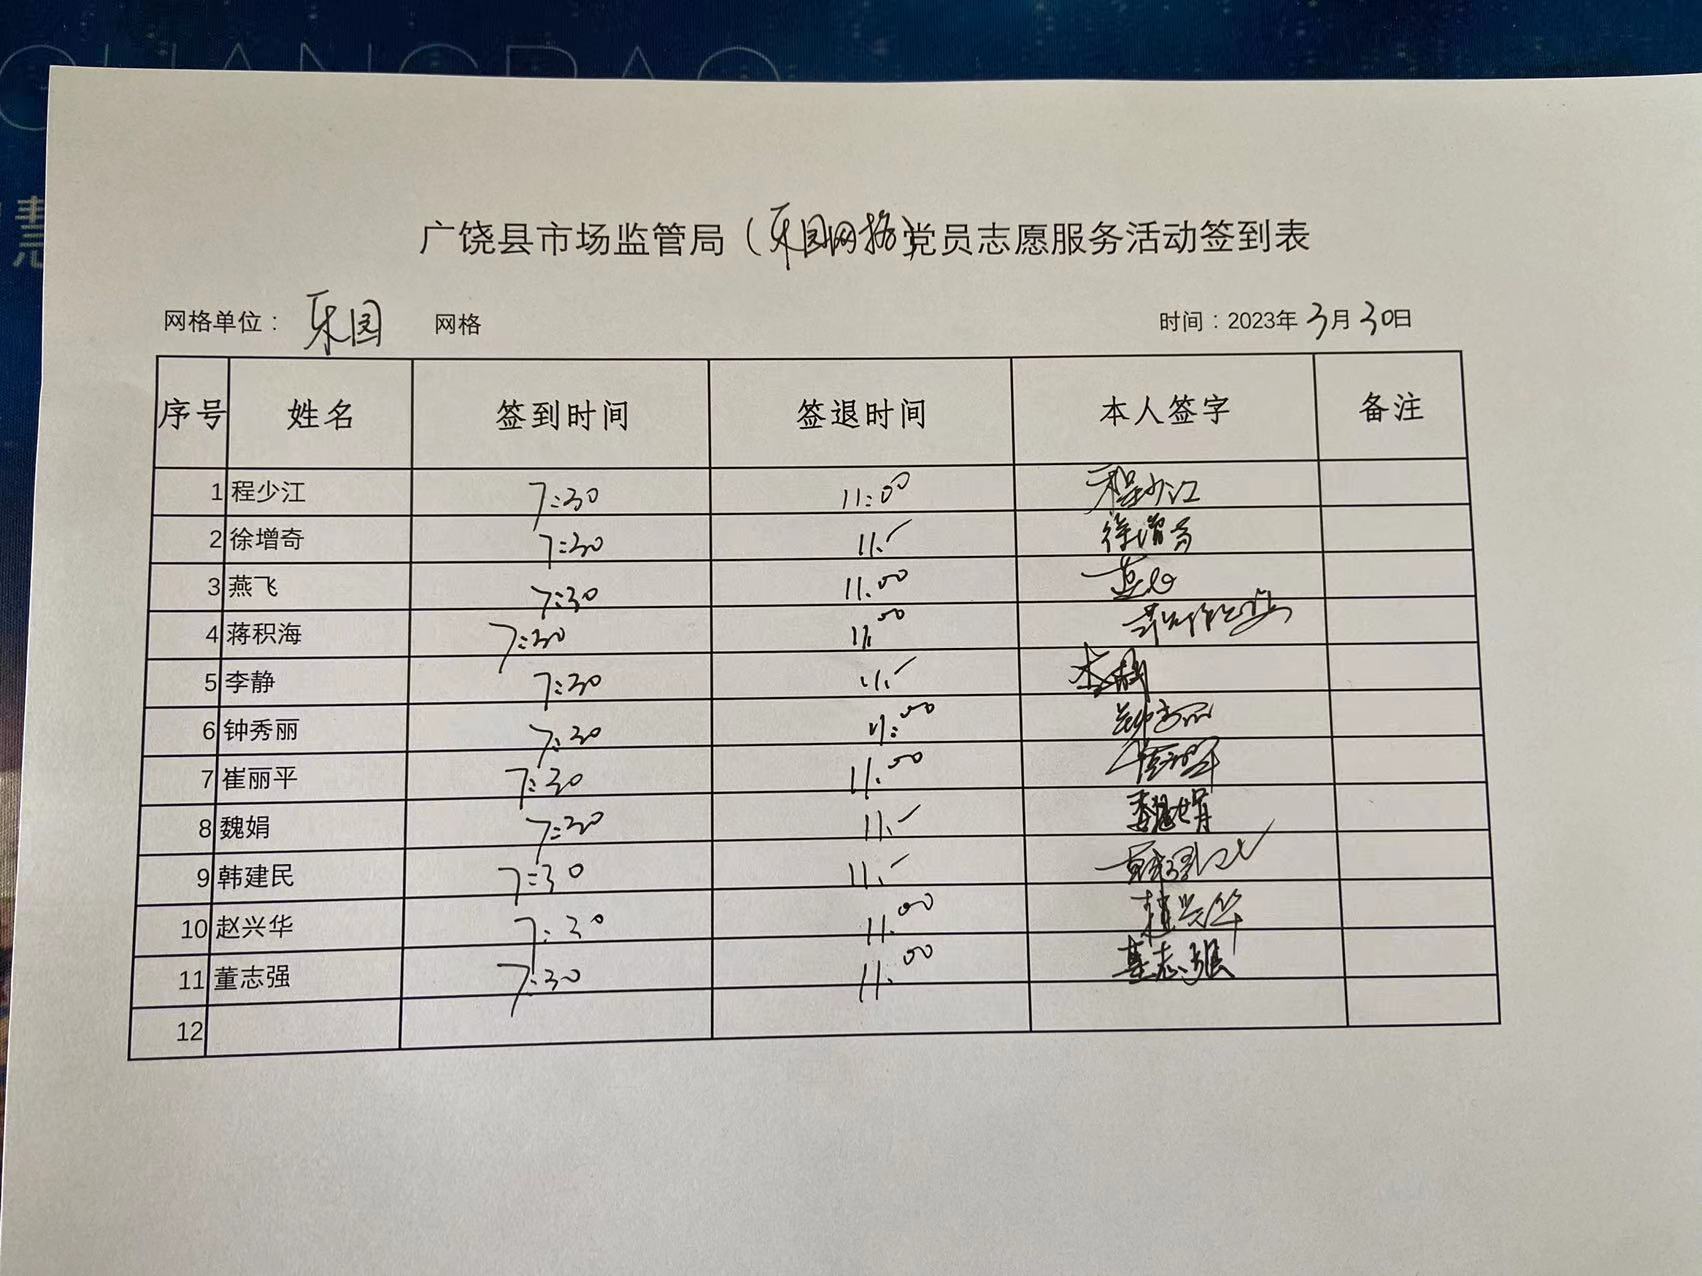 GUANGRAO
慧
广饶县市场监管局（乐园网格）党员志愿服务活动签到表
网格单位：乐园 网格 时间：2023年3月30日
序号 姓名 签到时间 签退时间 本人签字 备注
1 程少江 7:30 11:00 程少江
2 徐增奇 7:30 11. 徐增奇
3 燕飞 7:30 11.00 燕飞
4 蒋积海 7:30 11.00 蒋积海
5 李静 7:30 11. 李静
6 钟秀丽 7:30 11:00 钟秀丽
7 崔丽平 7:30 11.00 崔丽平
8 魏娟 7:30 11. 魏娟
9 韩建民 7:30 11. 韩建民
10 赵兴华 7:30 11.00 赵兴华
11 董志强 7:30 11.00 董志强
12